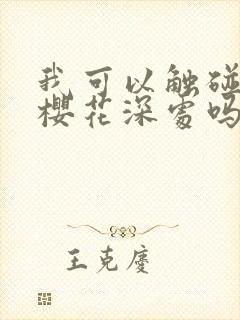 我可以触碰
樱花深处吗
王克庆